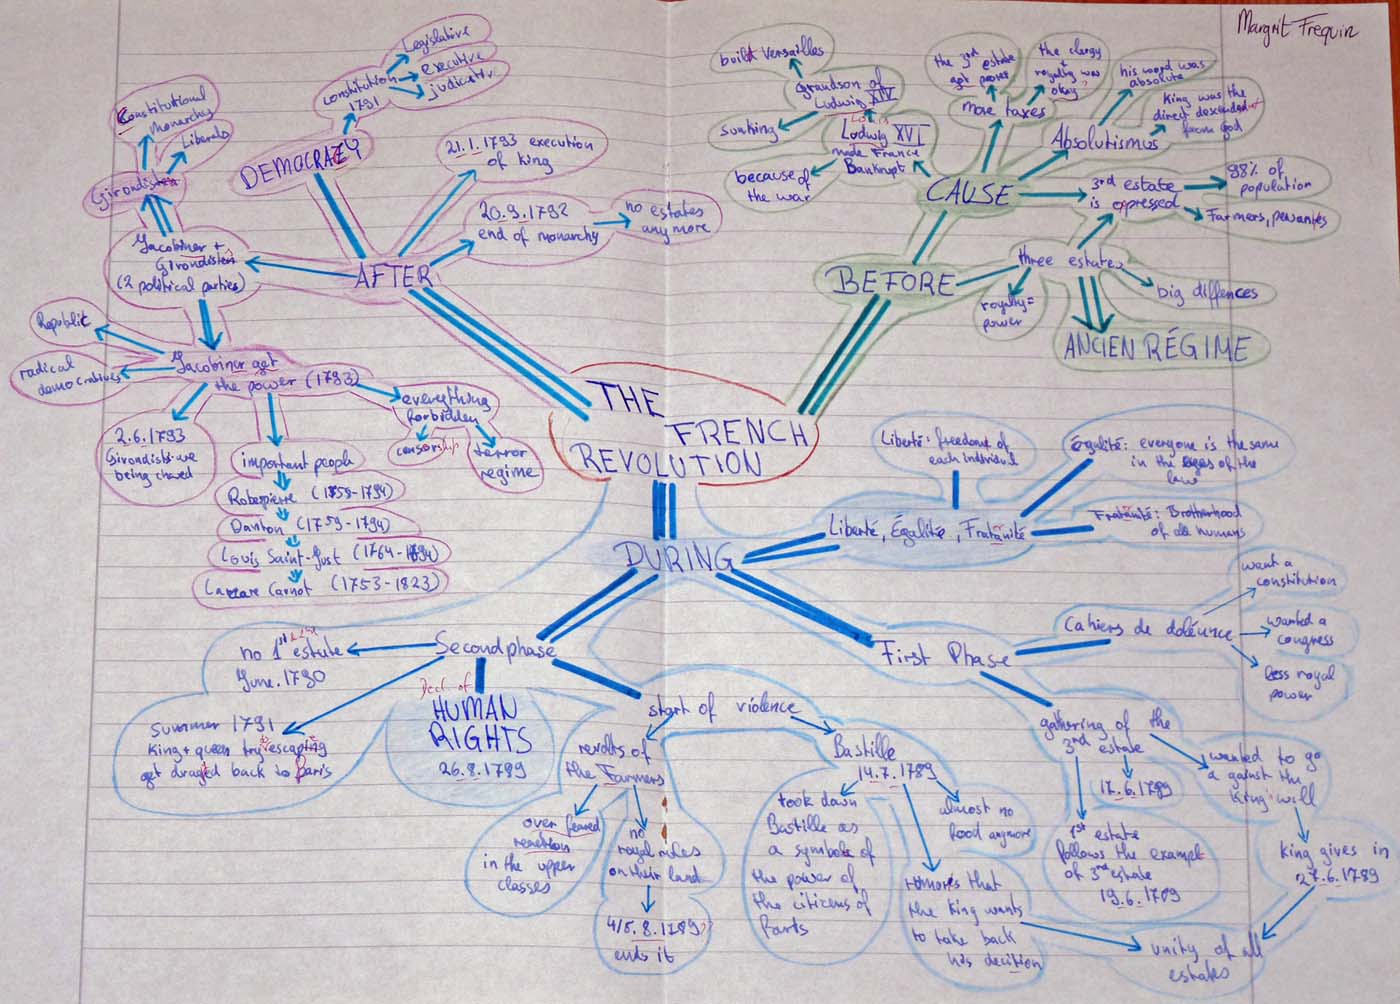 Margrit Frequin
THE
FRENCH
REVOLUTION
BEFORE
CAUSE
Ludwig XVI
made France
Bankrupt
Grandson of
Ludwig XIV
built Versailles
sunking
because of
the war
more taxes
the 3rd estate
got poorer
the clergy
+
royalty was
okay
Absolutismus
his word was
absolute
King was the
direct descendent
from God
3rd estate
is opressed
98% of
population
Farmers, pesantes
three estates
royalty =
power
big diffences
ANCIEN RÉGIME
AFTER
DEMOCRAZY
constitution
1791
Legislative
executive
judicative
21.1.1793 execution
of king
20.9.1792
end of monarchy
no estates
any more
Jacobiner +
Girondisten
(2 political parties)
Girondisten
Constitutional
monarchy
Liberals
Jacobiner get
the power (1793)
Republic
radical
democratives
2.6.1793
Girondists we
being chased
important people
Robespierre (1759-1794)
Danton (1759-1794)
Louis Saint-Just (1764-1794)
Lazare Carnot (1753-1823)
everything
forbidden
censorship
terror
regime
DURING
Liberté, Égalité, Fratanité
Liberté: freedome of
each individual
Égalité: everyone is the same
in the eyes of the
law
Fratanité: Brotherhood
of all humans
First Phase
Cahiers de doléance
want a
constitution
wanted a
congress
less royal
power
gathering of the
3rd estate
17.6.1789
1st estate
follows the exampl
of 3rd estate
19.6.1789
wanted to go
a gainst the
King's will
King gives in
27.6.1789
unity of all
estates
Second phase
no 1st estate
June.1790
Summer 1791
King + queen try escapting
get dragted back to Paris
Decl. of
HUMAN
RIGHTS
26.8.1789
start of violence
revolts of
the Farmers
over feared
reaction
in the upper
classes
no
royal rules
on their land
4/5.8.1789
ends it
Bastille
14.7.1789
took down
Bastille as
a symbole of
the power of
the citicens of
Paris
almost no
food anymore
rumores that
the King wants
to take back
his decition